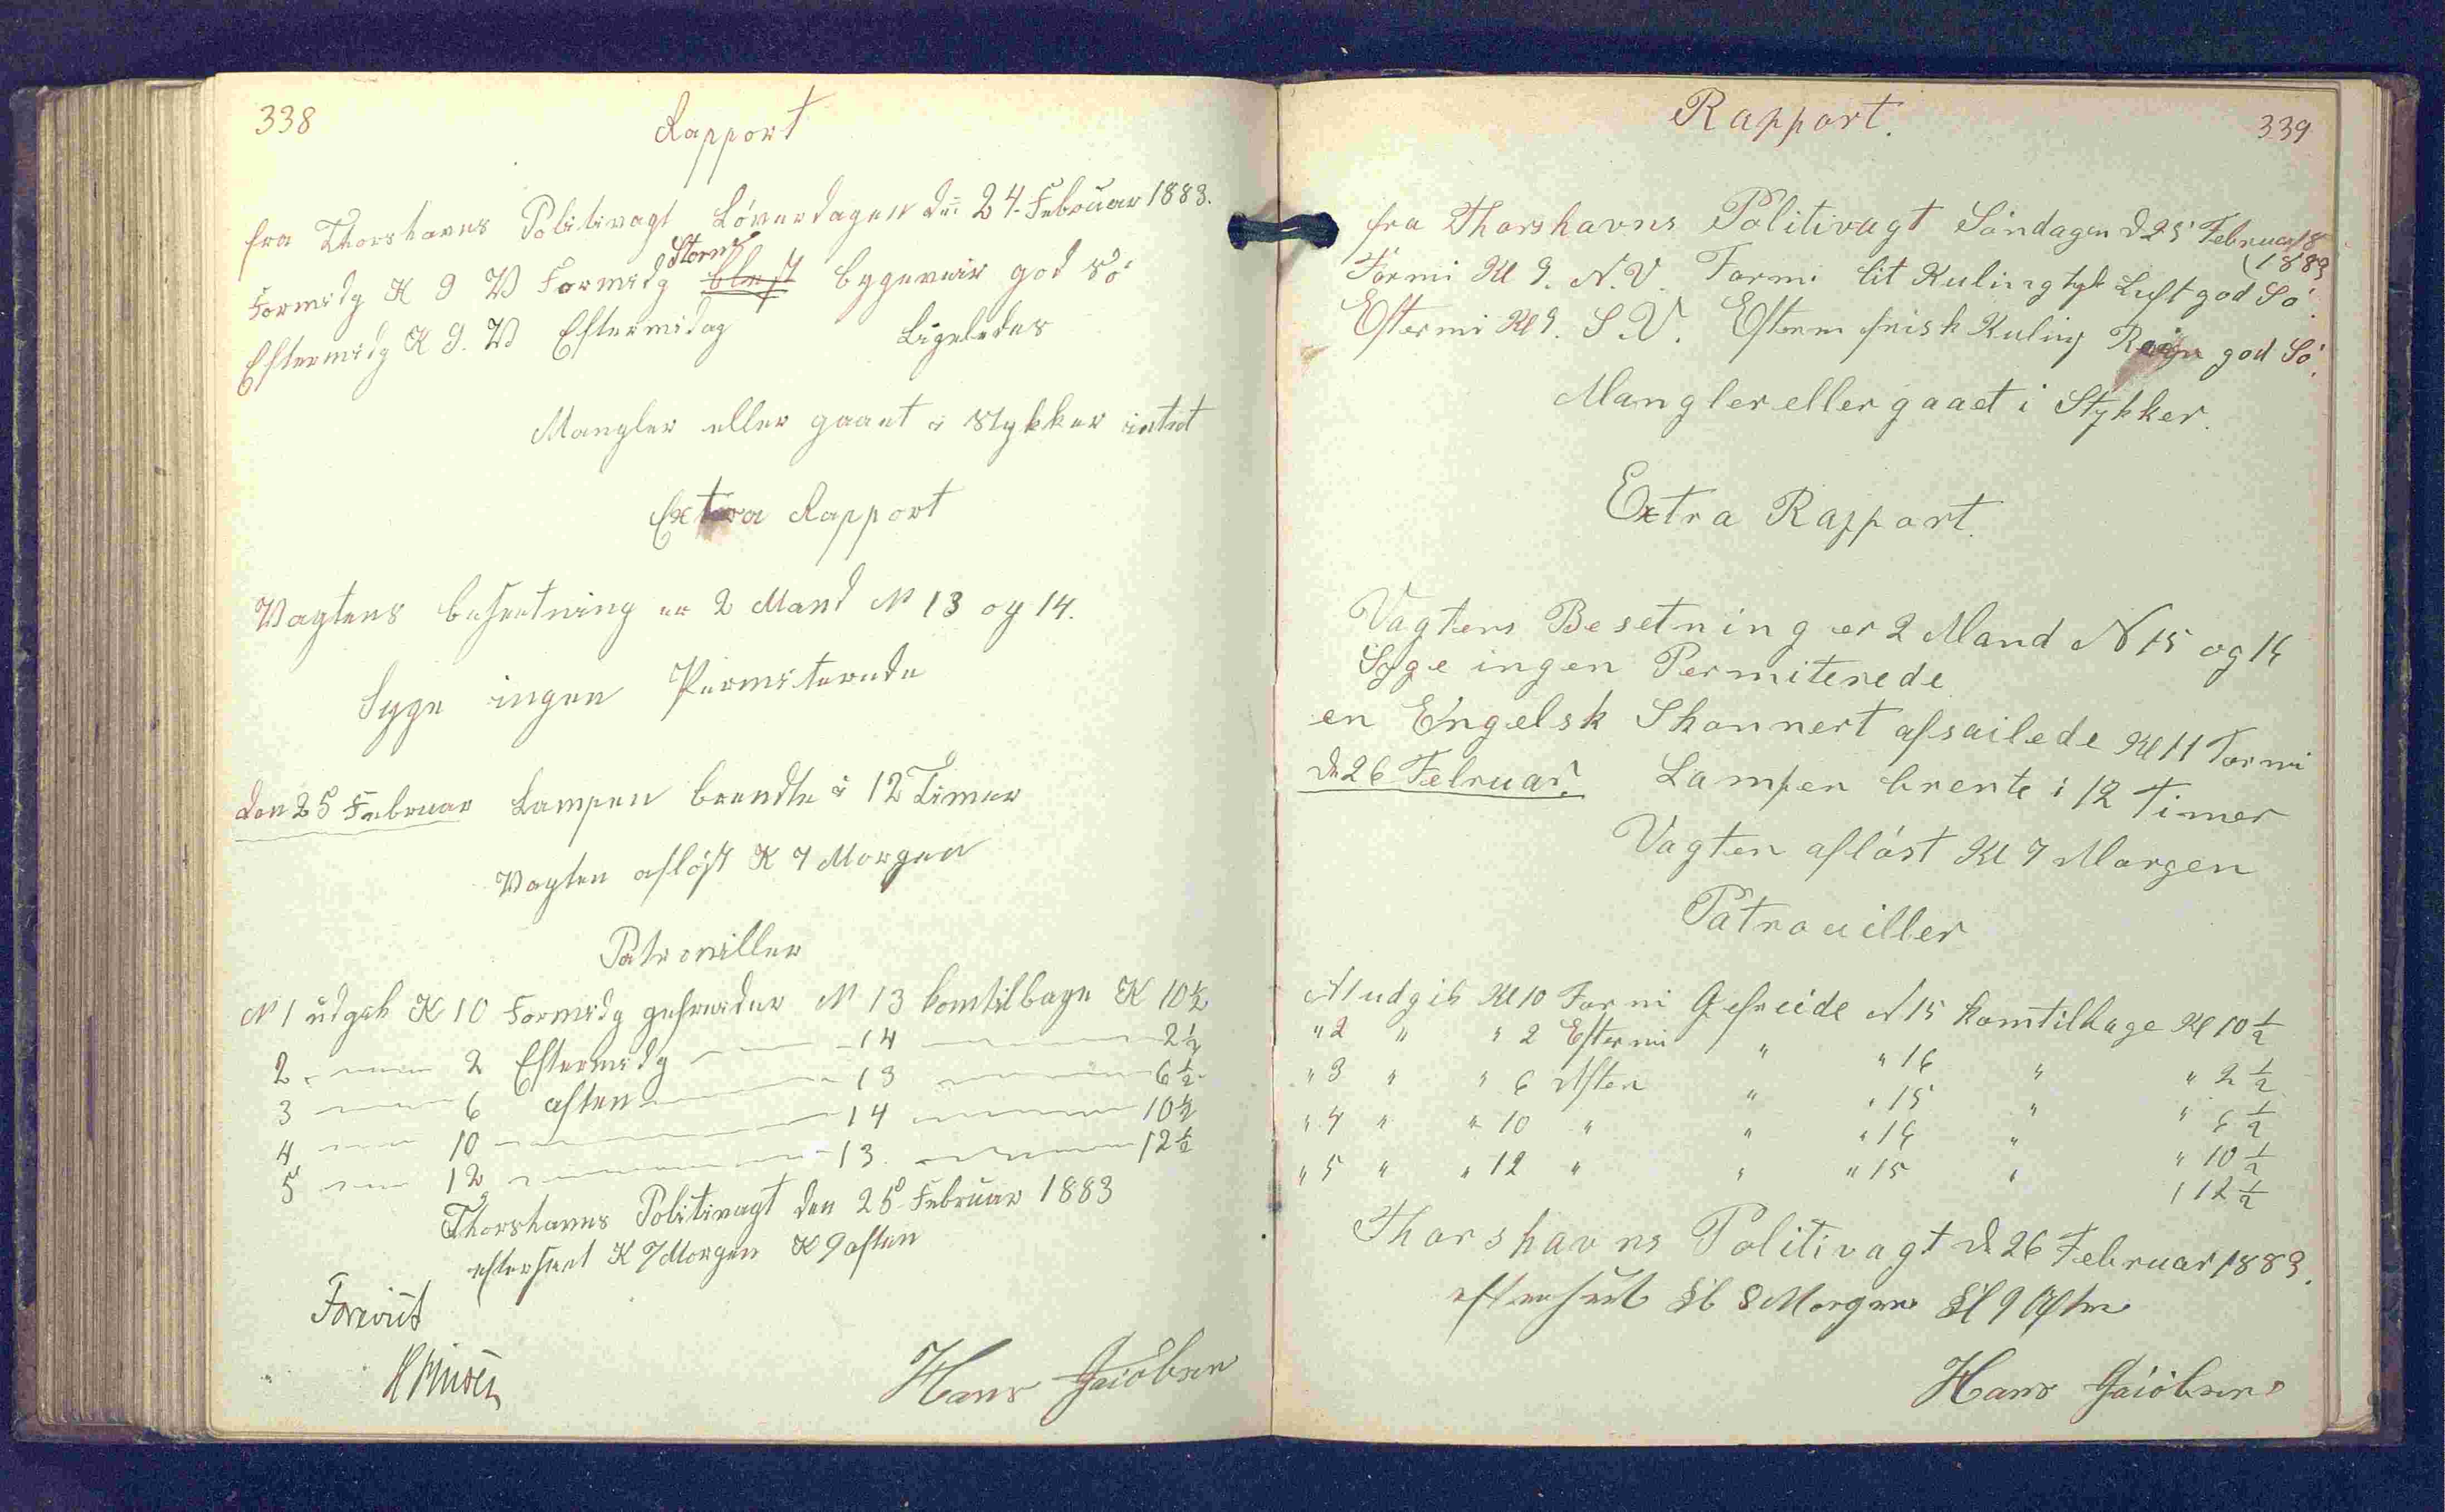 338
Rapport
fra Thorshavns Politivagt Löverdagen d: 24. Februar 1883.
Formidg K 9 V Formidg Storm blæst bygeveir god Sö
Eftermidg K 9. V Eftermidag Ligeledes
Mangler eller gaaet i Stykker intet
Extra Rapport
Vagtens besætning er 2 Mand N 13 og 14.
Syge ingen Permiterede
den 25 Februar Lampen brendte i 12 Timer
Vagten aflöst K 7 Morgen
Patrouiller
N 1 udgik K 10 Formidg gefreider N 13 komtilbage K 10½
2 — 2 Eftermidg — 14 — 2½
3 — 6 aften — 13 — 6½
4 — 10 — 14 — 10½
5 — 12 — 13 — 12½
Thorshavns Politivagt den 25 Februar 1883
efterseet K 7 Morgen K 9 aften
Forevist
Hans Jacobsen
Rapport.
339
fra Thorshavns Politivagt Söndagen d 25 Februar 18
1883
Formi Kl 9. N.V. Formi lit Kuling tyk Luft god Sö.
Eftermi Kl 9. S.V. Efterm frisk Kuling Regn god Sö.
Mangler eller gaaet i Stykker.
Extra Rapport.
Vagtens Besetning er 2 Mand N 15 og 16
Syge ingen Permiterede
en Engelsk Skonnert afsailede Kl 11 Formi
d 26 Februar. Lampen brente i 12 Timer
Vagten aflöst Kl 7 Morgen
Patrouiller
N 1 udgik Kl 10 Formi Gefreide N 15 komtilbage Kl 10½
" 2 " " 2 Eftermi " " 16 " " 2½
" 3 " " 6 Aften " " 15 " " 6½
" 4 " " 10 " " " 16 " " 10½
" 5 " " 12 " " " 15 " " 12½
Thorshavns Politivagt d 26 Februar 1883.
efterseet Kl 8 Morgen Kl 9 Aften
Hans Jacobsen